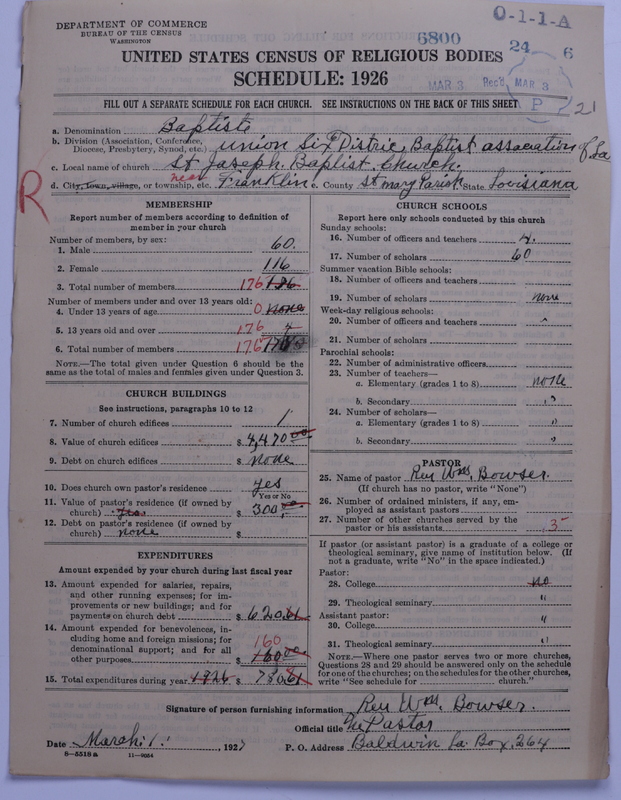 DEPARTMENT OF COMMERCE
BUREAU OF THE CENSUS
WASHINGTON
O-1-1-A
6800
24 6
UNITED STATES CENSUS OF RELIGIOUS BODIES
SCHEDULE: 1926
MAR 3 Rec'd MAR 3
P 21
FILL OUT A SEPARATE SCHEDULE FOR EACH CHURCH. SEE INSTRUCTIONS ON THE BACK OF THIS SHEET
a. Denomination Baptist
b. Division (Association, Conference, Diocese, Presbytery, Synod, etc.) union Six Distric Baptist assocation of La
c. Local name of church St Joseph Baptist Church.
R
d. City, town, village, or township, etc. near Franklin e. County St Mary Parish State Louisiana
MEMBERSHIP
Report number of members according to definition of
member in your church
Number of members, by sex:
1. Male 60.
2. Female 116
3. Total number of members 176
Number of members under and over 13 years old:
4. Under 13 years of age 0 none
5. 13 years old and over 176
6. Total number of members 176
NOTE.—The total given under Question 6 should be the
same as the total of males and females given under Question 3.
CHURCH BUILDINGS
See instructions, paragraphs 10 to 12
7. Number of church edifices 1
8. Value of church edifices $ 4,470 00
9. Debt on church edifices $ none
10. Does church own pastor's residence yes
Yes or No
11. Value of pastor's residence (if owned by
church) $ 300.
12. Debt on pastor's residence (if owned by
church) none $
EXPENDITURES
Amount expended by your church during last fiscal year
13. Amount expended for salaries, repairs,
and other running expenses; for im-
provements or new buildings; and for
payments on church debt $ 620.61
14. Amount expended for benevolences, in-
cluding home and foreign missions; for
denominational support; and for all
160
other purposes $ 160 00
15. Total expenditures during year 1926 $ 780.61
CHURCH SCHOOLS
Report here only schools conducted by this church
Sunday schools:
16. Number of officers and teachers 4.
17. Number of scholars 60
Summer vacation Bible schools:
18. Number of officers and teachers
19. Number of scholars none
Week-day religious schools:
20. Number of officers and teachers
21. Number of scholars
Parochial schools:
22. Number of administrative officers
23. Number of teachers—
a. Elementary (grades 1 to 8) none
b. Secondary "
24. Number of scholars—
a. Elementary (grades 1 to 8) "
b. Secondary "
PASTOR
25. Name of pastor Rev Wm. Bowser.
(If church has no pastor, write "None")
26. Number of ordained ministers, if any, em-
ployed as assistant pastors
27. Number of other churches served by the
pastor or his assistants 3
If pastor (or assistant pastor) is a graduate of a college or
theological seminary, give name of institution below. (If
not a graduate, write "No" in the space indicated.)
Pastor:
28. College no
29. Theological seminary "
Assistant pastor:
30. College "
31. Theological seminary "
NOTE.—Where one pastor serves two or more churches,
Questions 28 and 29 should be answered only on the schedule
for one of the churches; on the schedules for the other churches,
write "See schedule for church."
Signature of person furnishing information Rev Wm. Bowser.
Official title The Pastor
Date March 1. , 1927 P. O. Address Baldwin La. Box, 264
8-5518 a 11-9054